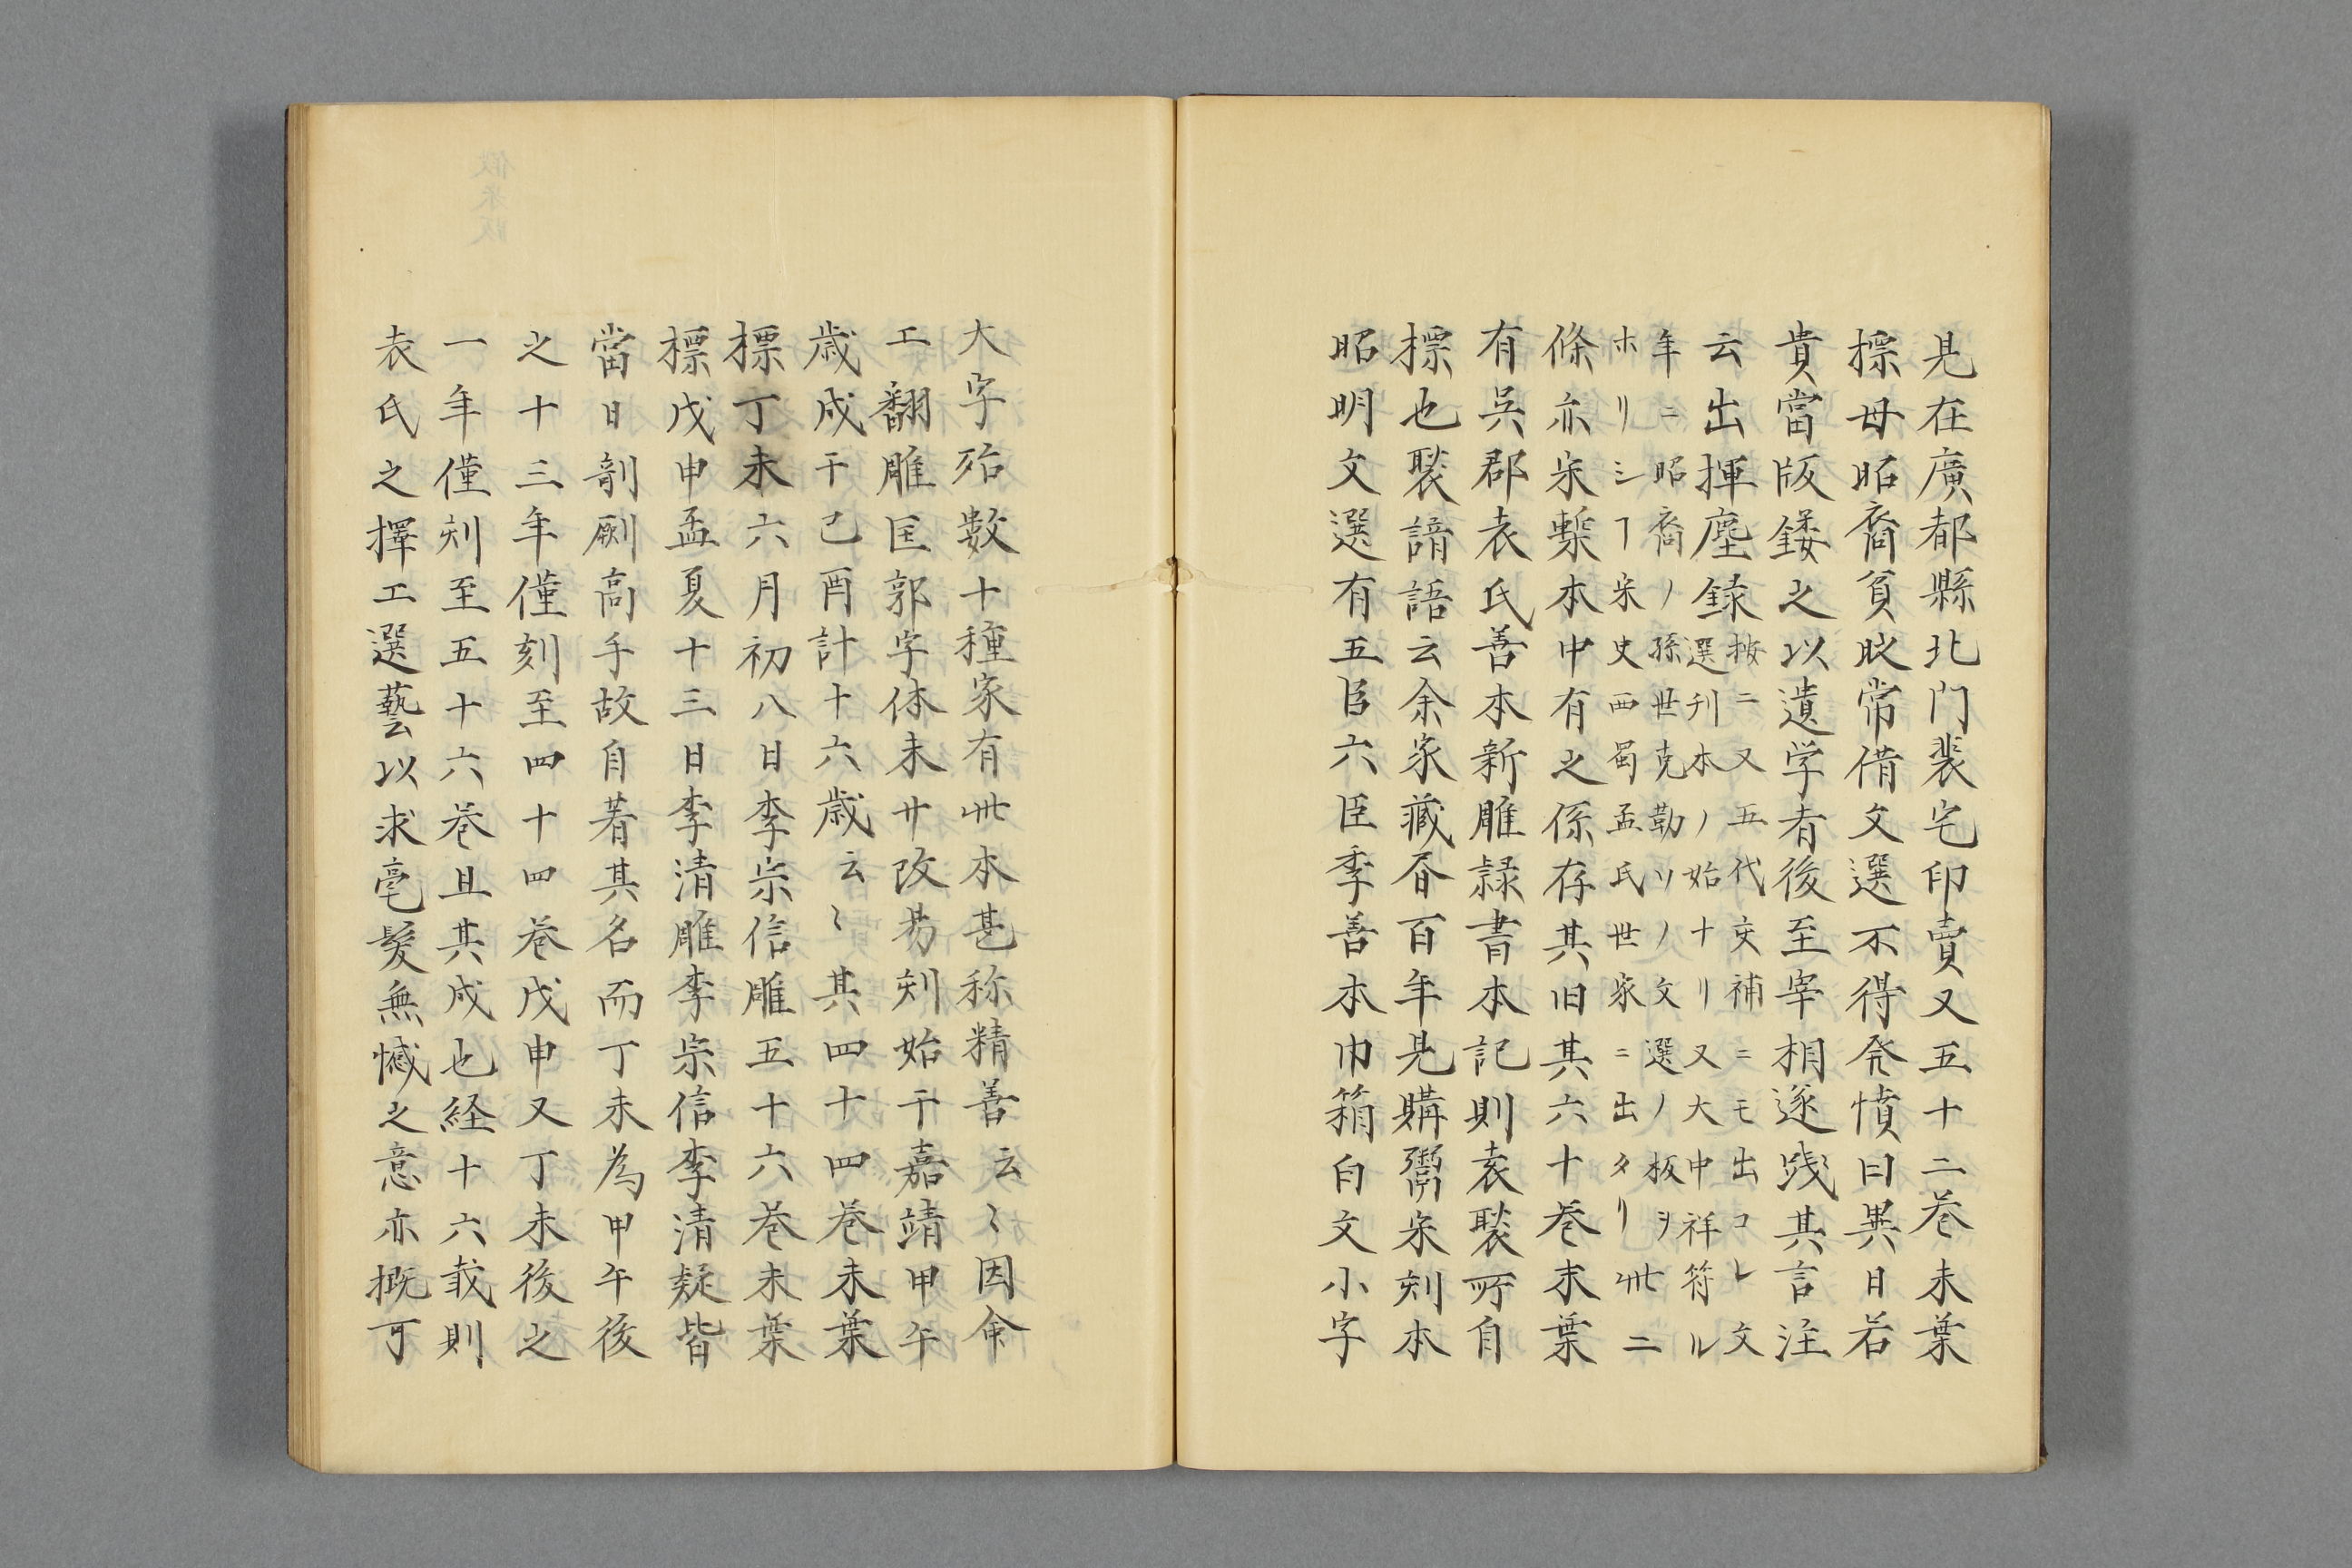 見在廣都縣北门裴宅印賣又五十二巻末葉
摽毋昭裔貧時常借文選不得発憤曰異日若
貴當版鏤之以遺学者後至宰相遂践其言注
云出揮塵録按ニ又五代史補ニモ出コレ文
選刊本ノ始十リ又大中祥符ル
年ニ昭裔ノ孫世克勤ソノ文選ノ板ヲ
ホリシヿ宋史西蜀孟氏世家ニ出タリ此ニ
條亦宋槧本中有之係存其旧其六十巻末葉
有呉郡袁氏善本新雕隷書本記則袁褧所自
摽也褧諳語云余家藏昏百年見購鬻宋刻本
昭明文選有五臣六臣李善本巾箱白文小字
大字殆數十種家有此本甚称精善云〻因命
工翻雕匡郭字体未廾改易刻始于嘉靖甲午
歳成于己酉計十六歳云〻其四十四巻末葉
摽丁未六月初八日李宗信雕五十六巻末葉
摽戊申孟夏十三日李清雕李宗信李清疑皆
當日剞劂高手故自著其名而丁未為甲午後
之十三年僅刻至四十四巻戊申又丁未後之
一年僅刻至五十六巻且其成也経十六載則
袁氏之擇工選藝以求毫髪無憾之意亦概可